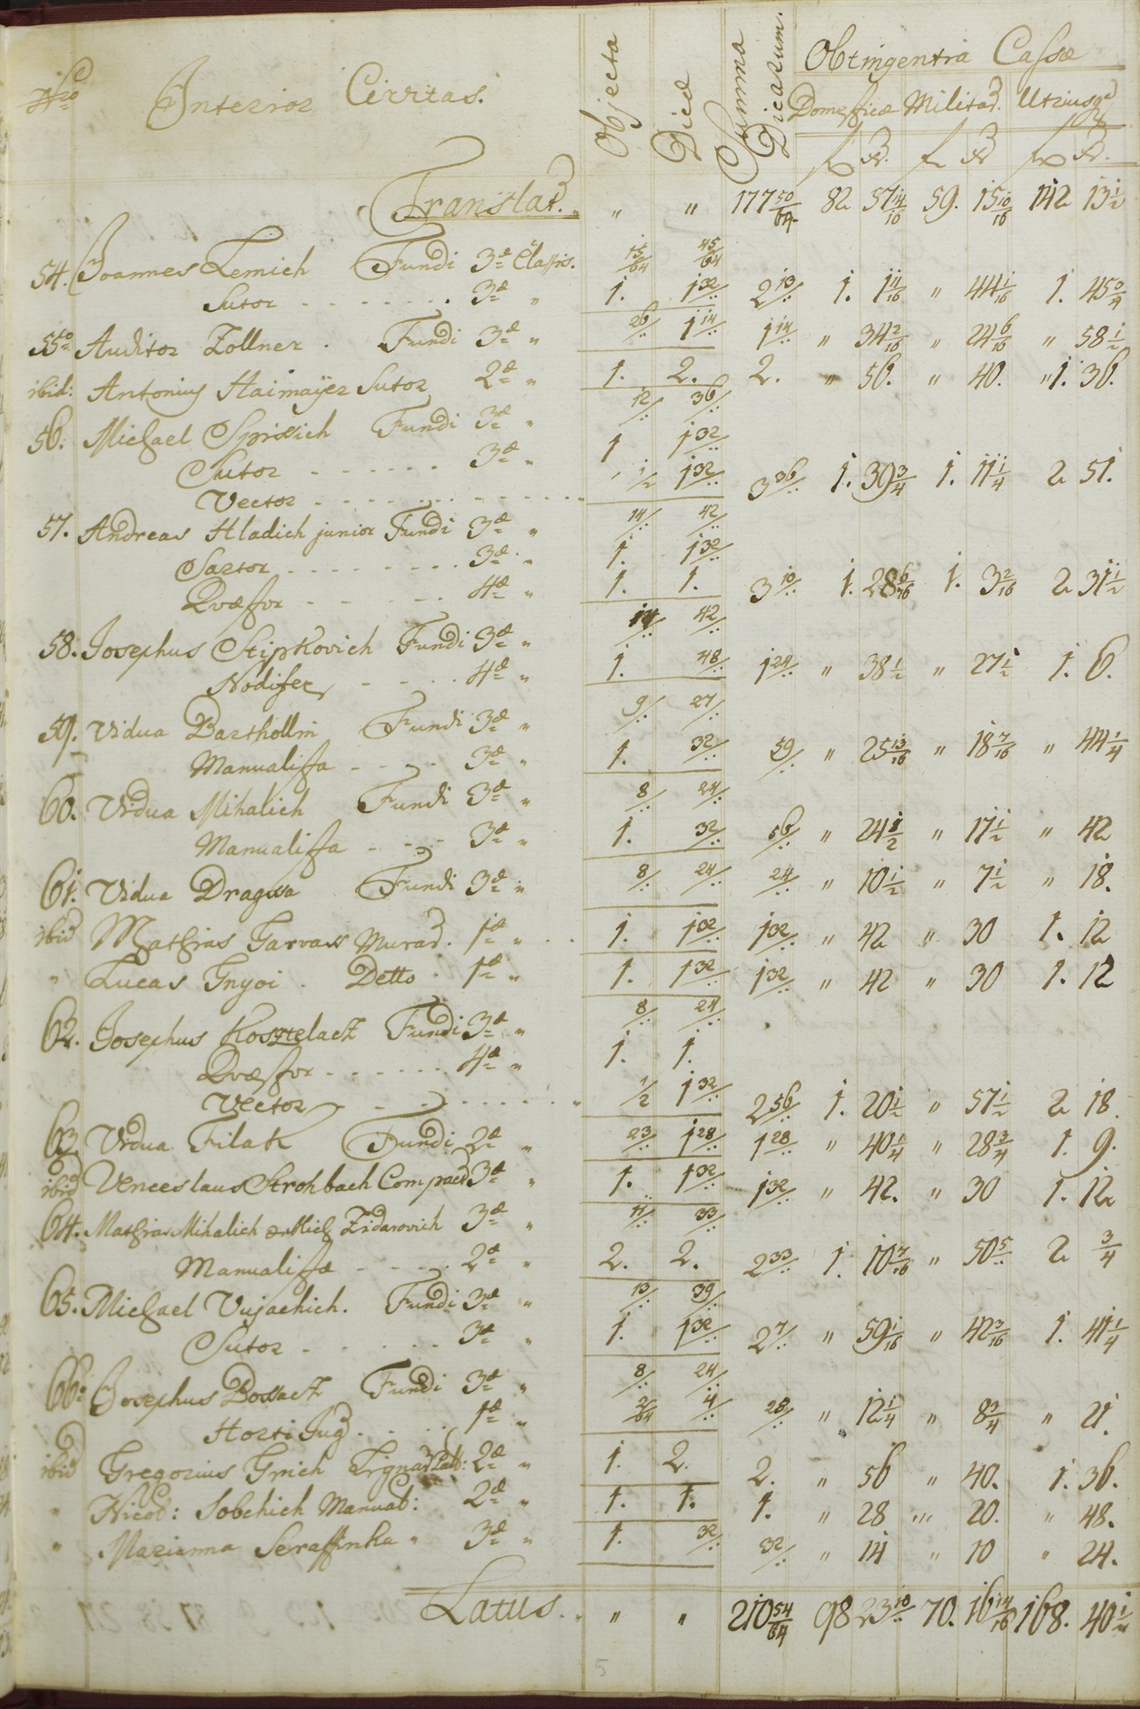 Interior Civitas.
Objecta Dicæ Summa Dicarum. Obtingentia Cassæ
Domesticæ Militar. Utriusq
f xr. f xr f xr.
Translat. " " 177 50/64 82 57 14/16 59. 15 10/16 142 13 1/2
54. Joannes Lemich Fundi 3æ Classis. 15/64 45/64
Sutor 3æ " 1. 1 32/ 2 13/ 1. 1 14/16 " 44 1/16 1. 45 3/4
55 Auditor Zollner. Fundi 3æ " 26/ 1 14/ 1 14/ " 34 2/16 " 24 6/16 " 58 1/2
ibid: Antonius Haimaijer Sutor 2æ " 1. 2. 2. " 56. " 40. " 1. 36.
56. Michael Spissich Fundi 3æ " 12/ 36/
Sutor 3æ " 1 1 32/
Vector 1/2 1 32/ 3 36/ 1. 39 3/4 1. 11 1/4 2 51.
57. Andreas Hladich junior Fundi 3æ " 14/ 42/
Sartor 3æ " 1. 1 32/
Quæstor 4æ " 1. 1. 3 10/ 1. 28 6/16 1. 3 2/16 2 31 1/2
58. Josephus Stipkovich Fundi 3æ " 14/ 42/
Nodifex 4æ " 1. 48/ 1 24/ " 38 1/2 " 27 1/2 1. 6.
59. Vidua Barthollin Fundi 3æ " 9/ 27/
Manualista 3æ " 1. 32/ 59/ " 25 13/16 " 18 7/16 " 44 1/4
60. Vidua Mihalich Fundi 3æ " 8/ 24/
Manualista 3æ " 1. 32/ 56/ " 24 1/2 " 17 1/2 " 42
61. Vidua Dragusa Fundi 3æ " 8/ 24/ 24/ " 10 1/2 " 7 1/2 " 18.
ibid Mathias Tarvass Murar. 1æ " 1. 1 32/ 1 32/ " 42 " 30 1. 12
" Lucas Gnyoi. Detto 1æ " 1. 1 32/ 1 32/ " 42 " 30 1. 12
62. Josephus Kosztelacz Fundi 3æ " 8/ 24/
Quæstor 4æ " 1. 1.
Vector 1/2 1 32/ 2 56/ 1. 20 1/2 " 57 1/2 2 18
63 Vidua Filak Fundi 2æ " 23/ 1 28/ 1 28/ " 40 1/4 " 28 3/4 1. 9.
ibid Venceslaus Strohbach Compact 3æ " 1. 1 32/ 1 32/ " 42. " 30 1. 12
64. Mathias Mihalich et Mich Zidarovich 3æ " 11/ 33/
Manualistæ 2æ " 2. 2. 2 33/ 1. 10 7/16 " 50 5/ 2 3/4
65. Michael Vujachich. Fundi 3æ " 13/ 39/
Sutor 3æ " 1. 1 32/ 2 7/ " 59 1/16 " 42 3/16 1. 41 1/4
66: Josephus Bossacz Fundi 3æ " 8/ 24/
Horti Jug 1æ " 2/64 4/ 28/ " 12 1/4 " 8 3/4 " 21.
ibid Gregorius Grich 2æ " 1. 2. 2. " 56 " 40. 1. 36.
" Nicol: Sobchich Manual: 2æ " 1. 1. 1. " 28 " 20. " 48.
" Marianna Seraffinka " 3æ " 1. 32/ 32/ " 14 " 10 " 24.
Latus. " " 210 54/64 98 23 10/ 70. 16 14/16 168. 40 1/2
5